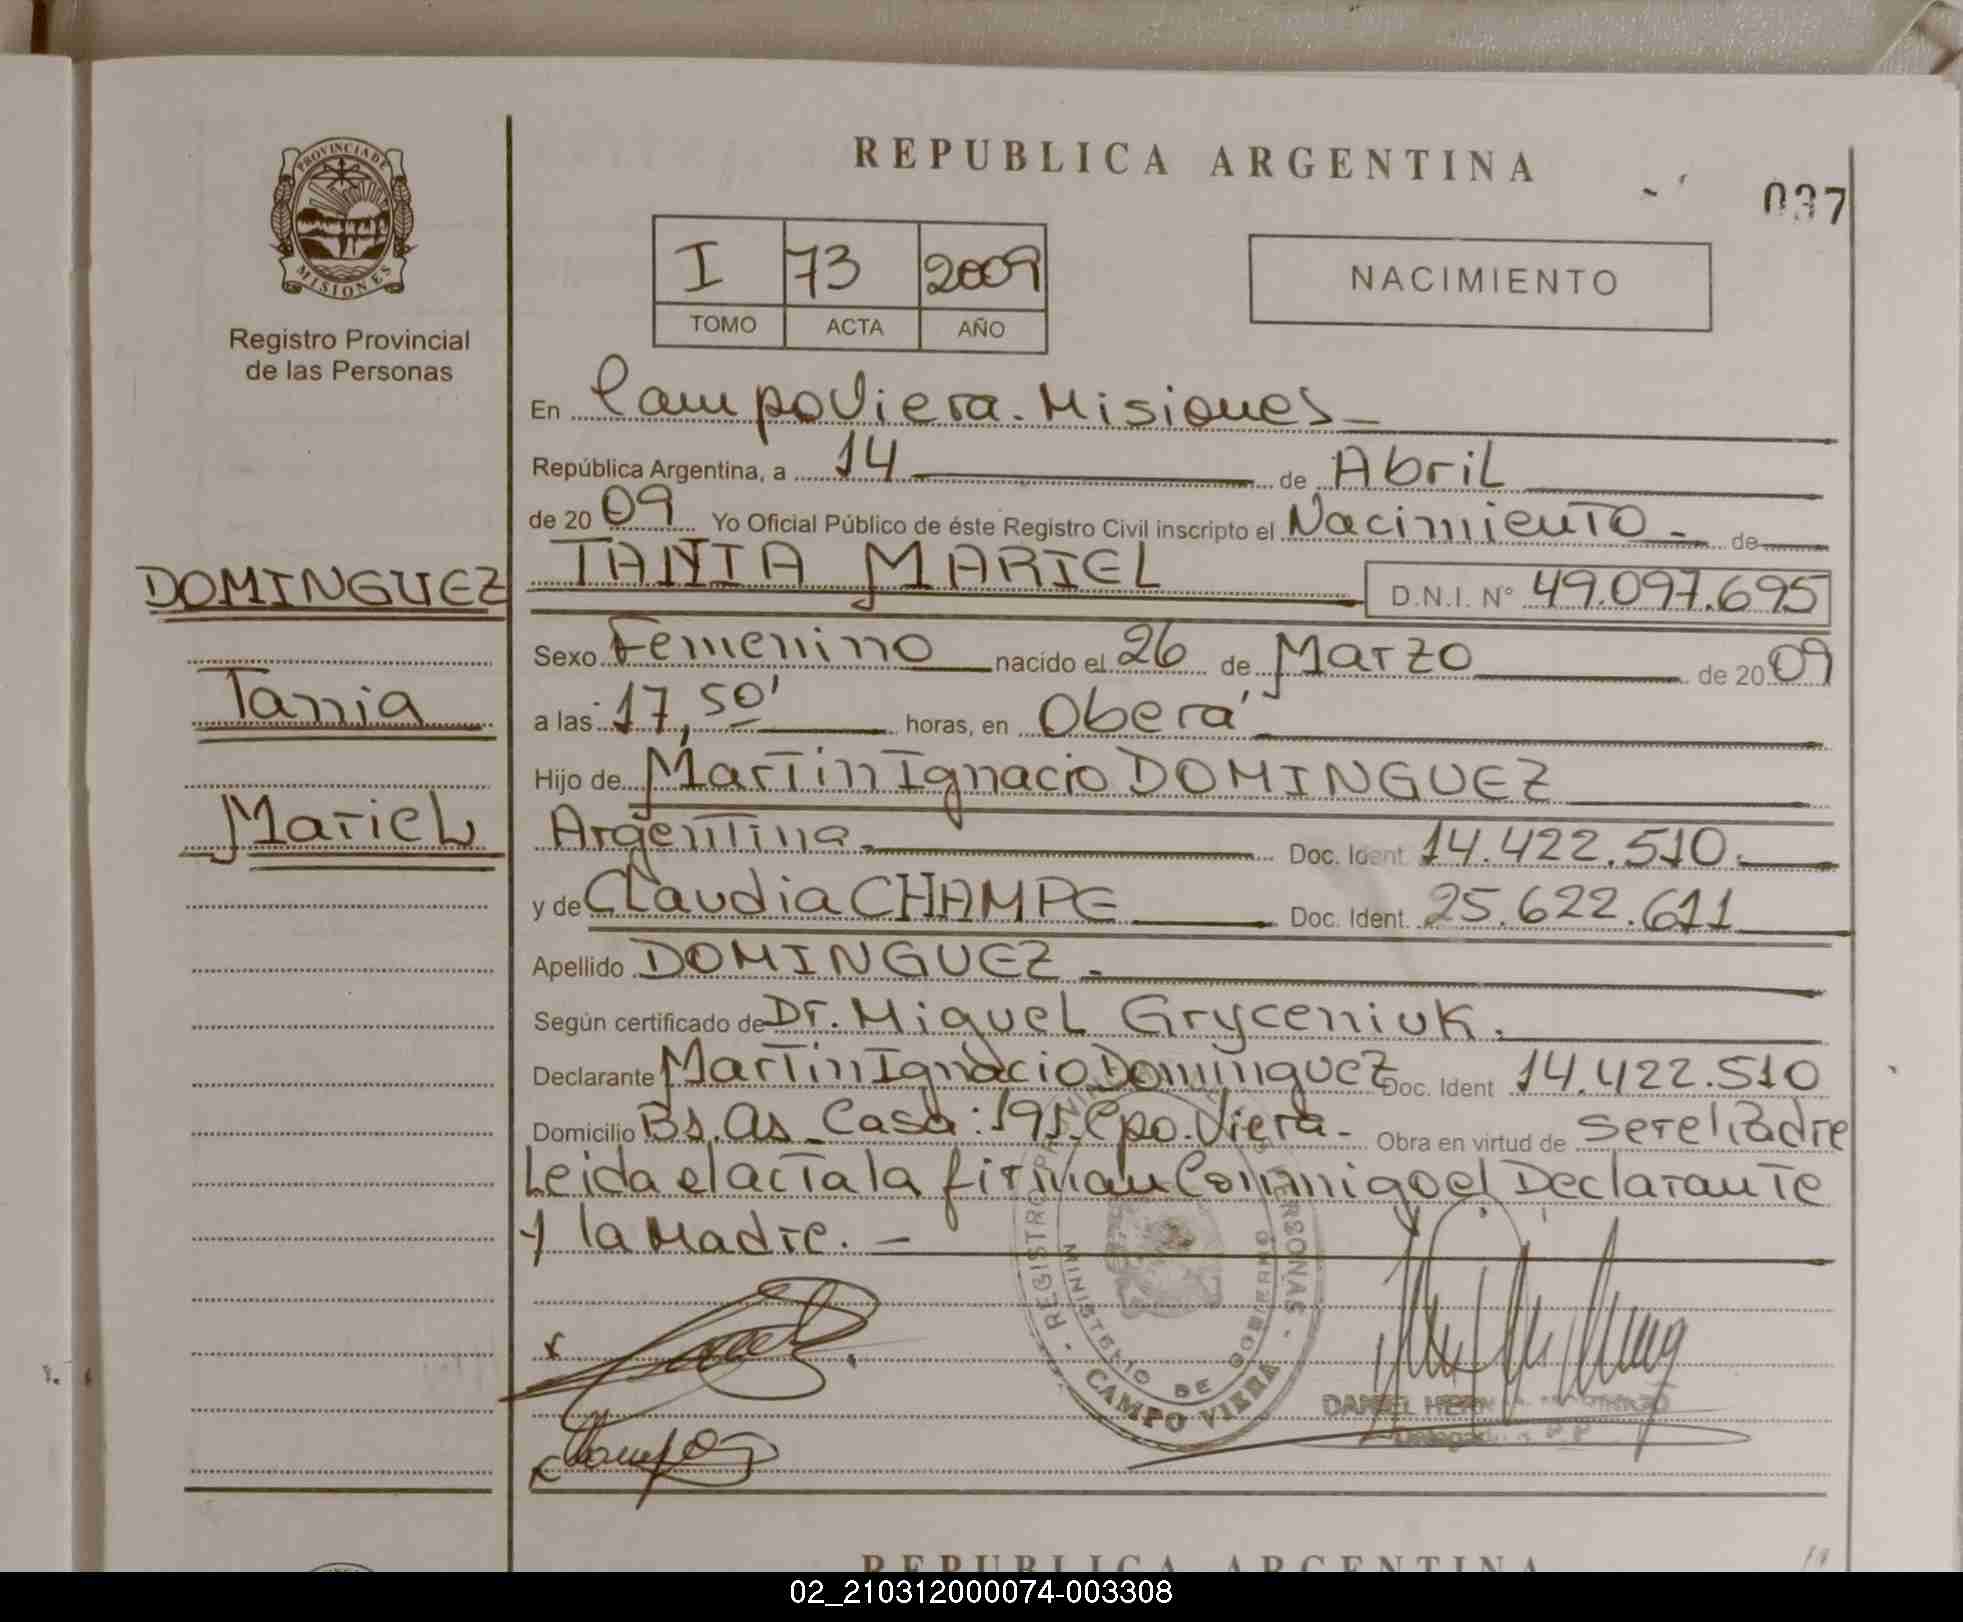 REPUBLICA ARGENTINA
037
PROVINCIA DE MISIONES
Registro Provincial
de las Personas
I 73 2009
TOMO ACTA AÑO
NACIMIENTO
En Campo Viera. Misiones
República Argentina, a 14 de Abril
de 2009 Yo Oficial Público de éste Registro Civil inscripto el Nacimiento de
DOMINGUEZ
Tania
Mariel
TANIA MARIEL D.N.I. N° 49.097.695
Sexo Femenino nacido el 26 de Marzo de 2009
a las 17,50' horas, en Oberá
Hijo de Martin Ignacio DOMINGUEZ
Argentina. Doc. Ident. 14.422.510.
y de Claudia CHAMPE Doc. Ident. 25.622.611
Apellido DOMINGUEZ
Según certificado de Dr. Miguel Gryceniuk.
Declarante Martin Ignacio Dominguez Doc. Ident 14.422.510
Domicilio Bs. As. Casa: 191. Cpo. Viera - Obra en virtud de ser el Padre
Leida el acta la firman Conmigo el Declarante
y la Madre. -
REGISTRO PROVINCIAL DE LAS PERSONAS
MINISTERIO DE GOBIERNO
CAMPO VIERA
DANIEL
REPUBLICA ARGENTINA
02_210312000074-003308